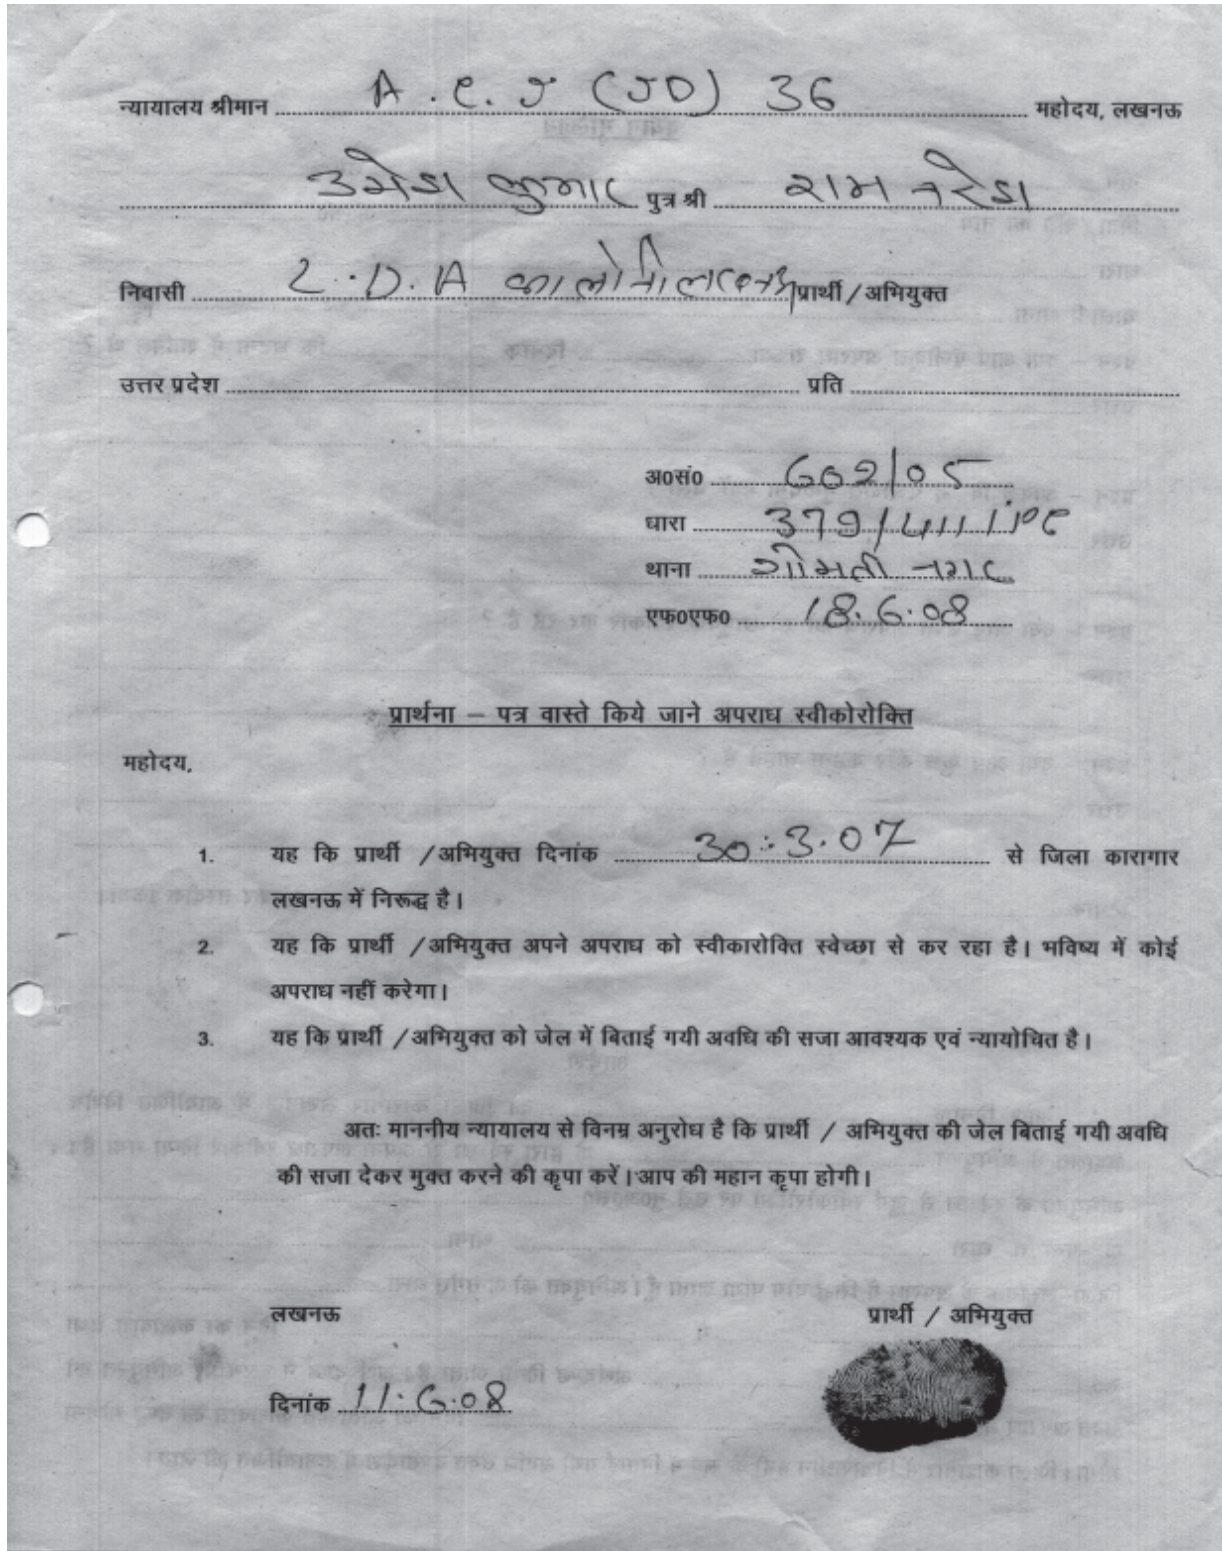 न्यायालय श्रीमान A.C.J (JD) 36 महोदय, लखनऊ
उमेश कुमार पुत्र श्री राम नरेश
निवासी L.D.A कालोनी लखनऊ प्रार्थी / अभियुक्त
उत्तर प्रदेश प्रति
अ०सं० 602/05
धारा 379/411 IPC
थाना गोमती नगर
एफ०एफ० 18.6.08
प्रार्थना – पत्र वास्ते किये जाने अपराध स्वीकोरोक्ति
महोदय,
1. यह कि प्रार्थी /अभियुक्त दिनांक 30.3.07 से जिला कारागार
लखनऊ में निरूद्ध है।
2. यह कि प्रार्थी /अभियुक्त अपने अपराध को स्वीकारोक्ति स्वेच्छा से कर रहा है। भविष्य में कोई
अपराध नहीं करेगा।
3. यह कि प्रार्थी /अभियुक्त को जेल में बिताई गयी अवधि की सजा आवश्यक एवं न्यायोचित है।
अतः माननीय न्यायालय से विनम्र अनुरोध है कि प्रार्थी / अभियुक्त की जेल बिताई गयी अवधि
की सजा देकर मुक्त करने की कृपा करें। आप की महान कृपा होगी।
लखनऊ प्रार्थी / अभियुक्त
दिनांक 11.6.08